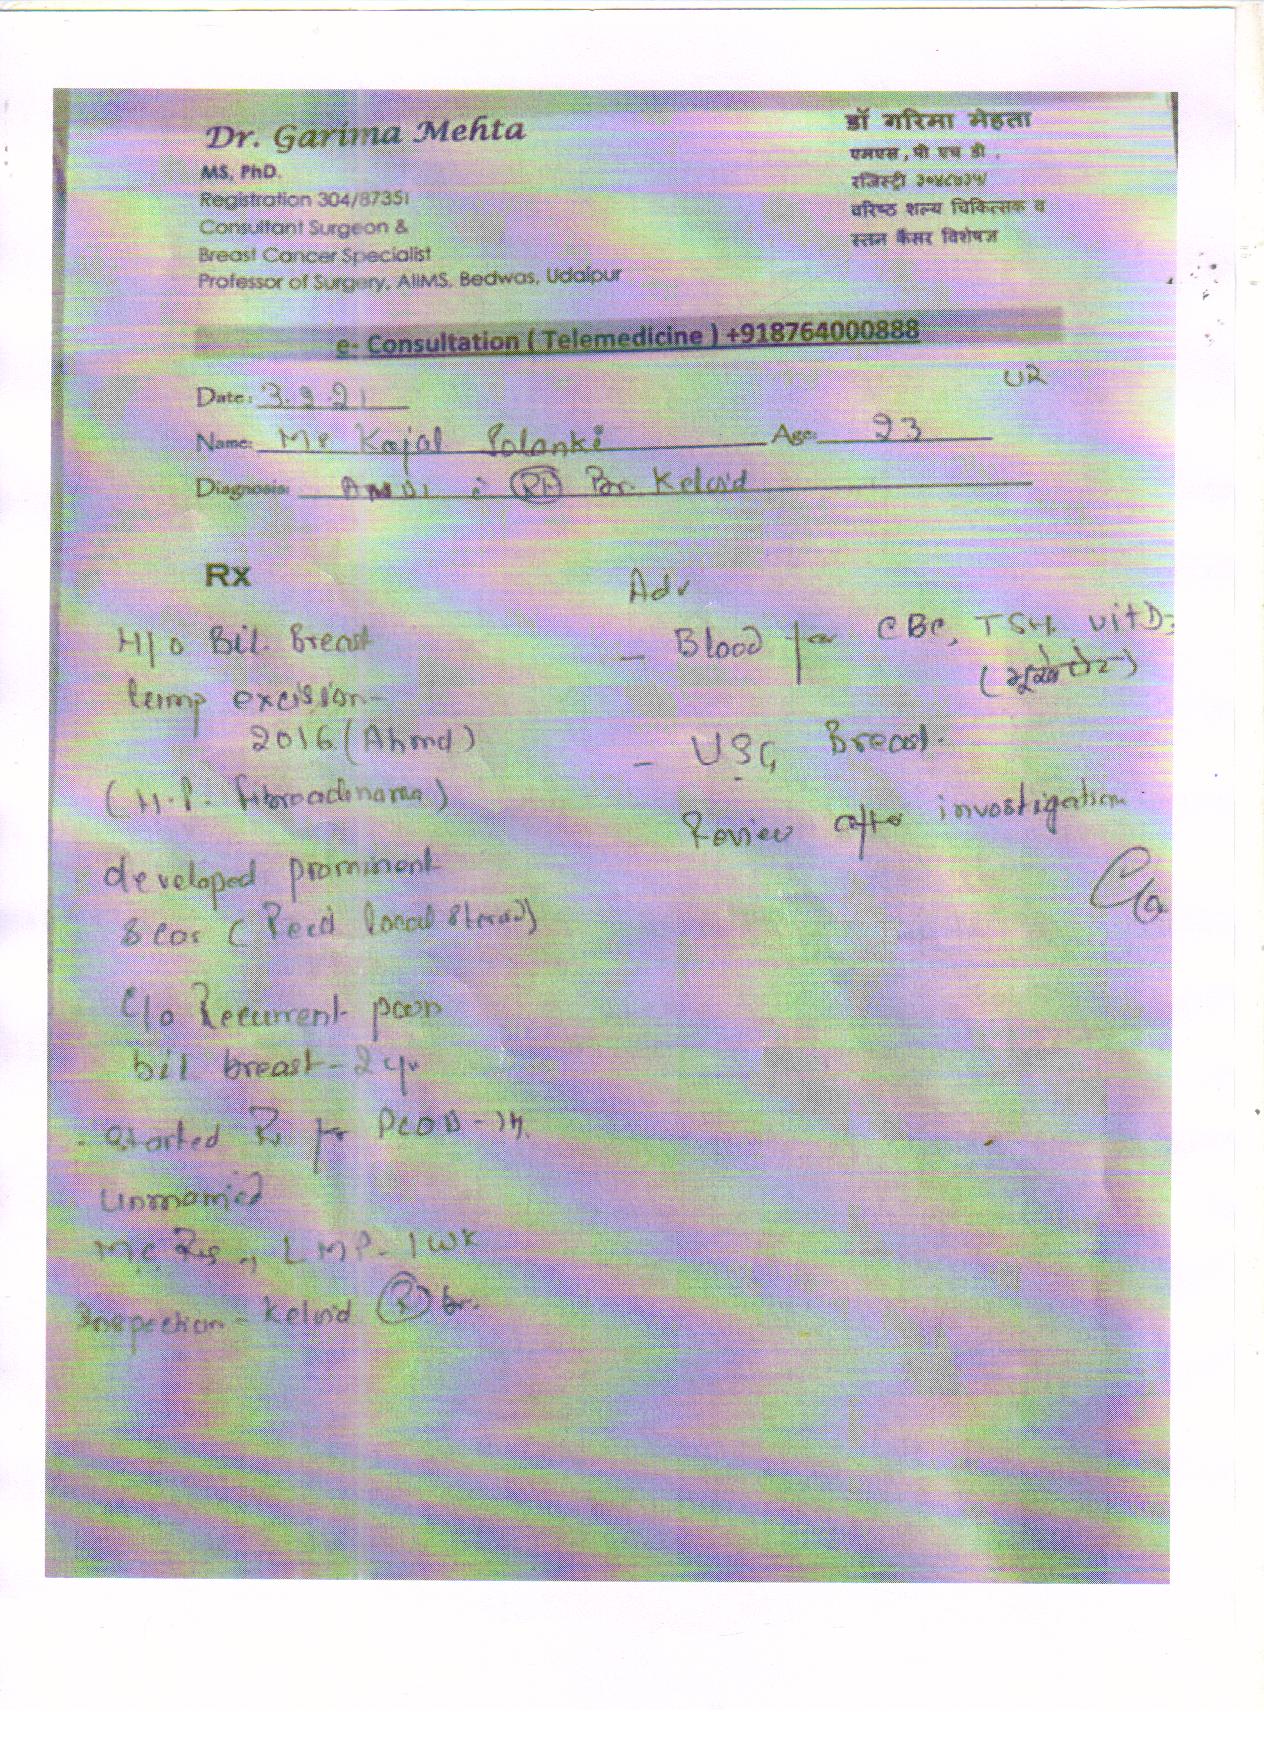 Dr. Garima Mehta
MS, PhD.
Registration 304/87351
Consultant Surgeon &
Breast Cancer Specialist
Professor of Surgery, AIIMS, Bedwas, Udaipur
डॉ गरिमा मेहता
एमएस, पी एच डी .
रजिस्ट्री
वरिष्ठ शल्य चिकित्सक व
स्तन कैंसर विशेषज्ञ
e- Consultation ( Telemedicine ) +918764000888
Date: 3.9.21
Name: Ms Kajal Solanki Age: 23
Diagnosis: Br. Keloid
Rx
H/o Bil. Breast
lump excision-
2016 (Ahmd)
(H.P. fibroadenoma)
developed prominent
Scar ( local steroid)
C/o Recurrent pain
bil breast - 2 yr
started Rx for PCOD -
Unmarried
MC Reg., LMP- 1 wk
Inspection - Keloid (R) br.
Adv
- Blood for CBC, TSH, vit D3
- USG Breast.
Review after investigation